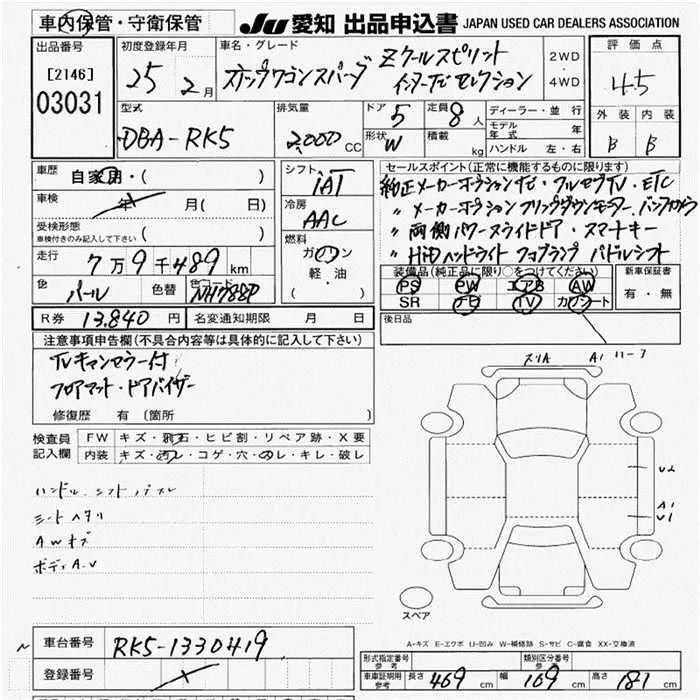 車内保管・守衛保管
JU 愛知 出品申込書 JAPAN USED CAR DEALERS ASSOCIATION
出品番号
[2146]
03031
初度登録年月
25 2月
車名・グレード
ステップワゴンスパーダ Zクールスピリット
インターナビセレクション
2WD
4WD
評価点
4.5
外装 内装
B B
型式
DBA-RK5
排気量
2,000 CC
ドア 5
定員 8 人
形状 W
積載 kg
ディーラー・並行
モデル年式 年
ハンドル 左・右
車歴 自家用・( )
車検 年 月( 日)
受検形態
車検付きのみ記入して下さい ( )
走行 7万9千489 km
色 パール 色替 色コード NH788P
シフト
IAT
冷房
AAC
燃料
ガソリン
軽・油
( )
セールスポイント(正常に機能するものに限ります)
純正メーカーオプションナビ・フルセグTV・ETC
〃 メーカーオプションフリップダウンモニター・バックカメラ
〃 両側パワースライドドア・スマートキー
〃 HiDヘッドライト フォグランプ パドルシフト
装備品(純正品に限り○をつけてください)
PS PW エアB AW
SR ナビ TV カワシート
新車保証書
有・無
R券 13,840 円 名変通知期限 月 日
後日品
注意事項申告欄(不具合内容等は具体的に記入して下さい)
TVキャンセラー付
フロアマット・ドアバイザー
修復歴 有 (箇所 )
検査員
記入欄
FW キズ・飛石・ヒビ割・リペア跡・X要
内装 キズ・汚レ・コゲ・穴・スレ・キレ・破レ
シートヘタリ
AWキズ
ボディA.U
スリA A1
U2
A1
U1
スペア
A-キズ E-エクボ U-凹み W-補修跡 S-サビ C-腐食 XX-交換済
車台番号 RK5-1330419
登録番号
型式指定番号
参考
類別区分番号
参考
車庫証明用
参考
長さ 469 cm 幅 169 cm 高さ 181 cm